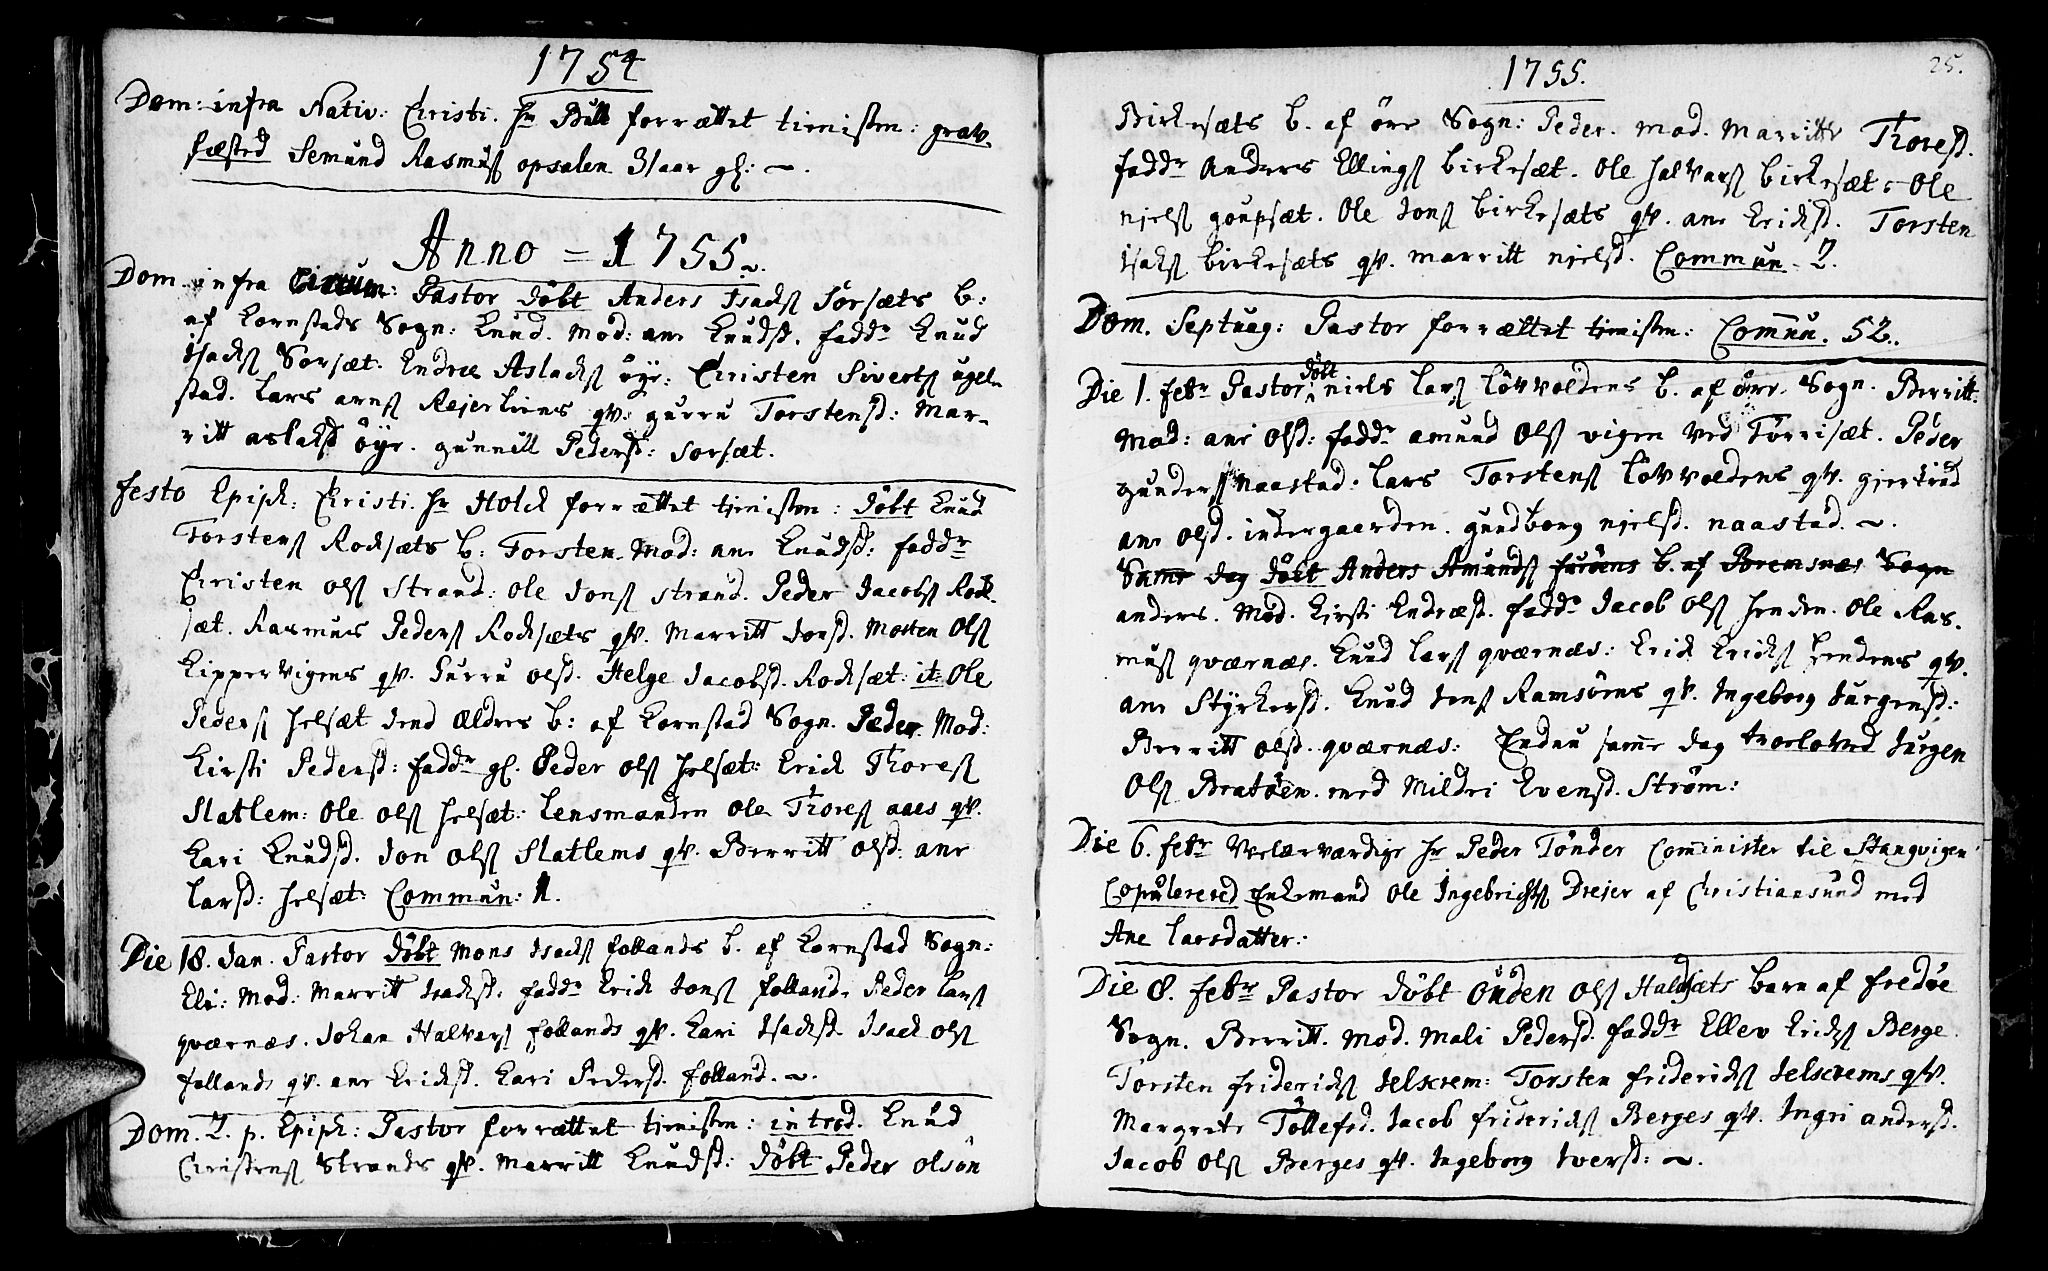 1754
Dom: infra Nativ: Christi. Hr Bull forrættet tienisten: grav
fæsted Semund Rasmuss opsalen 31 aar gl: ~.
Anno = 1755 ~.
Dom. infra Circum: Pastor döbt Anders Isachs Sorsæts b:
af Kornstads Sogn: Knud. Mod: ane Knudsd. fadd: Knud
Isachs Sorsæt. Endræ Aslachs öÿe: Christen Siverts ugel-
stad. Lars arns Rejerliens qv: gurru Torstensd: Mar-
ritt aslaksd öÿe. gunnill Pedersd: Sorsæt.
festo Epiph: Christi. Hr Holck forrættet tienisten: döbt Knud
Torstens Rodsæts b: Torsten. Mod: ane Knudsd: fadd:
Christen ols Strand: ole Jons strand. Peder Jacobs Rod-
sæt. Rasmus Peders Rodsæts qv. Marritt Jonsd. Mosten Ols
Kippervigens qv. Gurru olsd. Helge Jacobsd. Rodsæt: it: Ole
Peders Helsæt dend Ældres b: af Kornstad Sogn. Peder. Mod:
Kirsti Pedersd: fadd: gl. Peder ols Helsæt: Erich Thores
Slatlem: Ole ols Helsæt: Lensmanden Ole Thores aaes qv.
Kari Knudsd. Jon Ols Slatlems qv. Berritt olsd. ane
Larsd: Helsæt: Commun: 1.
Die 18. Jan. Pastor döbt Mons Isachs follands b. af Kornstad Sogn:
Eli: Mod: Marritt Isachsd. fadd: Erich Jons folland. Peder Lars
qværnæs. Johan Halvars follands qv. Kari Isachsd. Isach ols
follands qv. ane Erichsd. Kari Pedersd. folland. ~.
Dom. 2. p. Epiph: Pastor forrættet tienisten: introd. Knud
Christens Strands qv. Marritt Knudsd: döbt Peder olsön
1755. 25.
Birkesæts b. af öre Sogn: Peder. mod. Marritte Thoresd.
fadd: Anders Ellings birkesæt. Ole Halvars birkesæt: Ole
Njels goupsæt. Ole Jons birkesæts qv. ane Erichsd. Torsten
Isaks birkesæts qv. Marritt Njelsd. Commun. 2.
Dom. Septuag: Pastor forrættet tienisten: Commu. 52.
Die 1. febr Pastor döbt niels Lars Lövvoldens b. af öre. Sogn. Berritt.
Mod: ane olsd: fadd: amund Ols vigen ved Torrisæt. Peder
gunders naastad. Lars Torstens Lövvoldens qv. gjertrud
ane olsd. indergaarden. gundborg njelsd. naastad. ~.
Samme dag döbt Anders Amunds furöens b. af Bremsnæs Sogn
anders. Mod. Kirsti Endræsd. fadd: Jacob Ols Henden. Ole Ras-
mus qværnæs. Knud Lars qværnæs: Erich Erichs Hendens qv.
ane Styrkersd. Knud Jens Ramsöens qv. Ingeborg Jurgensd:
Berritt Olsd. qværnæs: Endnu samme dag troeloved Jurgen
Ols Bratöen. med Mildri Evensd. Ström:
Die 6. febr Velærværdige Hr Peder Tönder Comminister til Stangvigen
Copulerered Enkemand Ole Ingebrichts Drejer af Christiansund med
Ane Larsdatter:
Die 8. febr Pastor döbt Onden Ols Haldsæts barn af fredöe
Sogn. Berritt. Mod. Mali Pedersd. fadd: Ellev Erichs Berge.
Torsten friderichs Jelskrem: Torsten friderichs Jelskrems qv.
Margrete Tollefsd. Jacob friderichs Berges qv. Ingri andersd.
Jacob ols Berges qv. Ingeborg Iversd: ~.